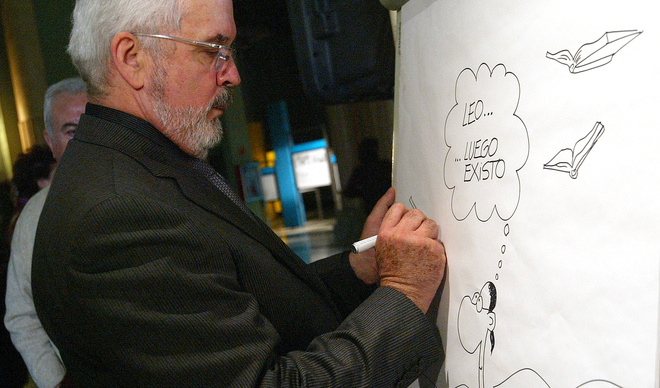 LEO...
...LUEGO
EXISTO